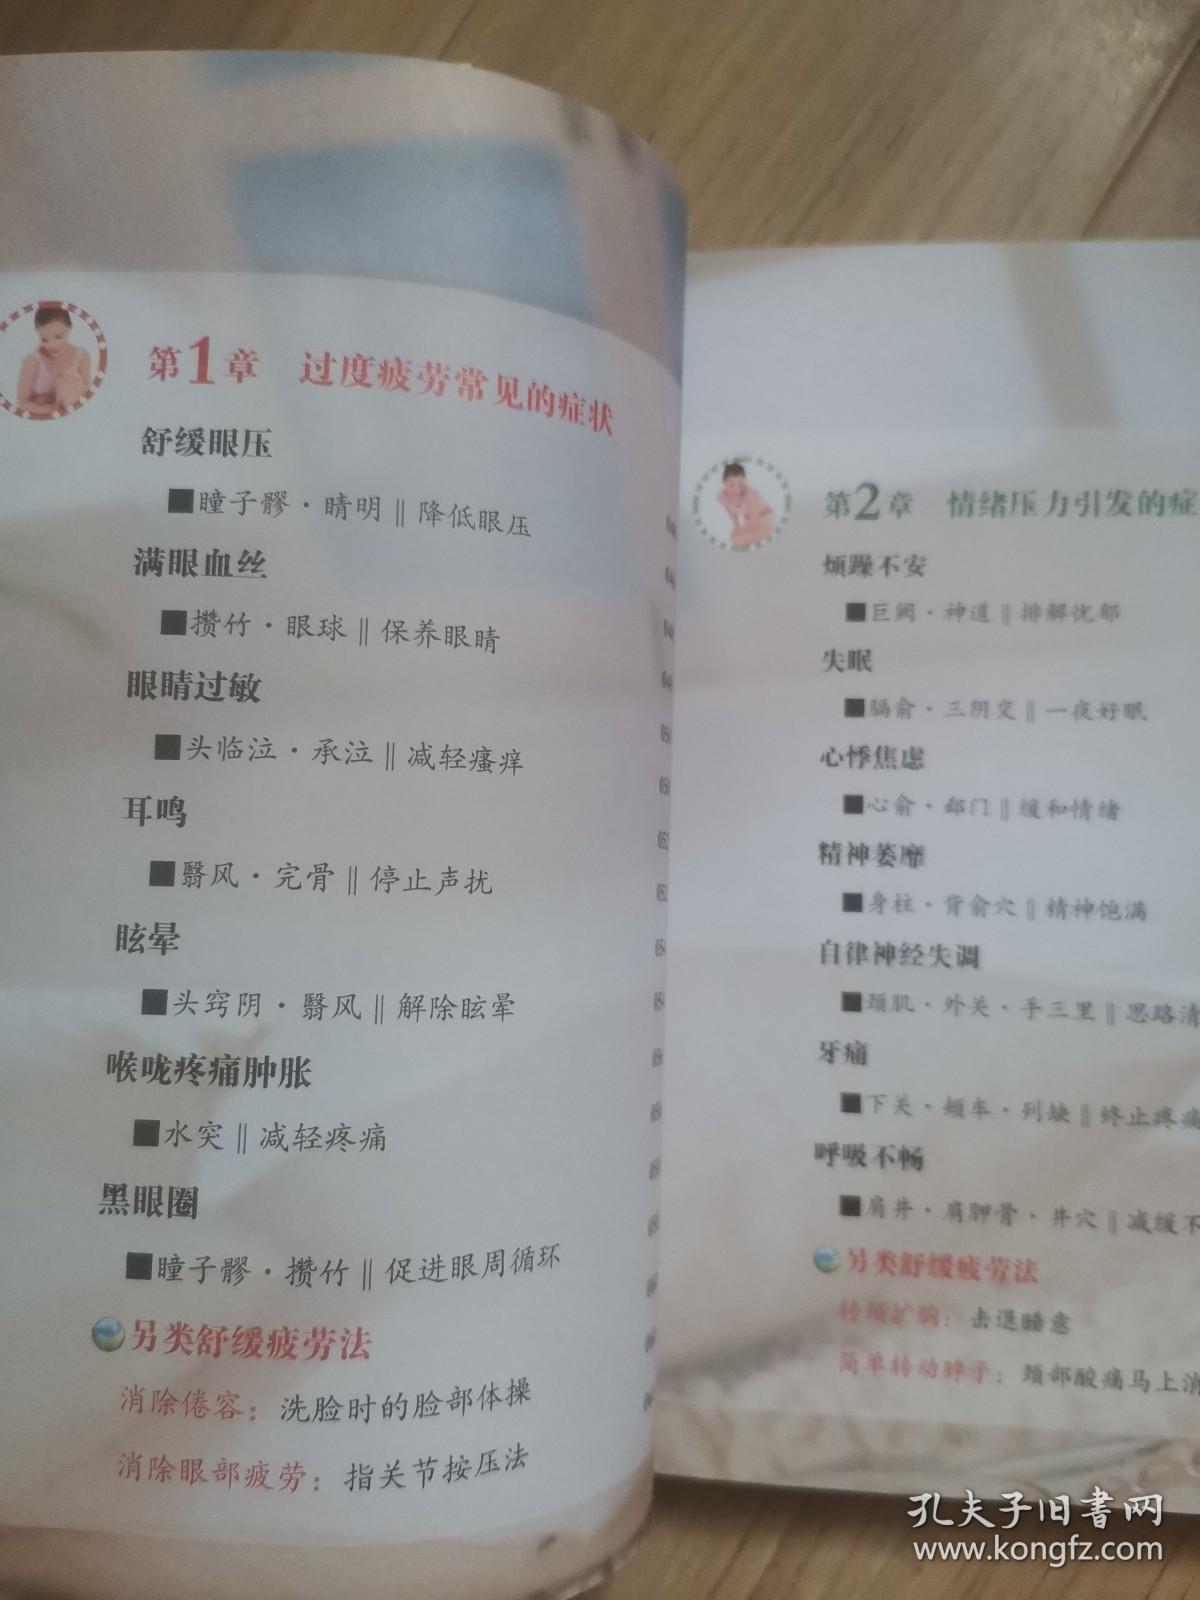 第1章 过度疲劳常见的症状
舒缓眼压
■瞳子髎·睛明‖降低眼压
满眼血丝
■攒竹·眼球‖保养眼睛
眼睛过敏
■头临泣·承泣‖减轻瘙痒
耳鸣
■翳风·完骨‖停止声扰
眩晕
■头窍阴·翳风‖解除眩晕
喉咙疼痛肿胀
■水突‖减轻疼痛
黑眼圈
■瞳子髎·攒竹‖促进眼周循环
另类舒缓疲劳法
消除倦容：洗脸时的脸部体操
消除眼部疲劳：指关节按压法
052
052
054
第2章 情绪压力引发的症
烦躁不安
■巨阙·神道‖排解忧郁
失眠
■膈俞·三阴交‖一夜好眠
心悸焦虑
■心俞·郄门‖缓和情绪
精神萎靡
■身柱·背俞穴‖精神饱满
自律神经失调
■颈肌·外关·手三里‖思路清
牙痛
■下关·颊车·列缺‖终止疼痛
呼吸不畅
■肩井·肩胛骨·井穴‖减缓不
另类舒缓疲劳法
转颈扩胸：击退睡意
简单转动脖子：颈部酸痛马上消
孔夫子旧书网
www.kongfz.com